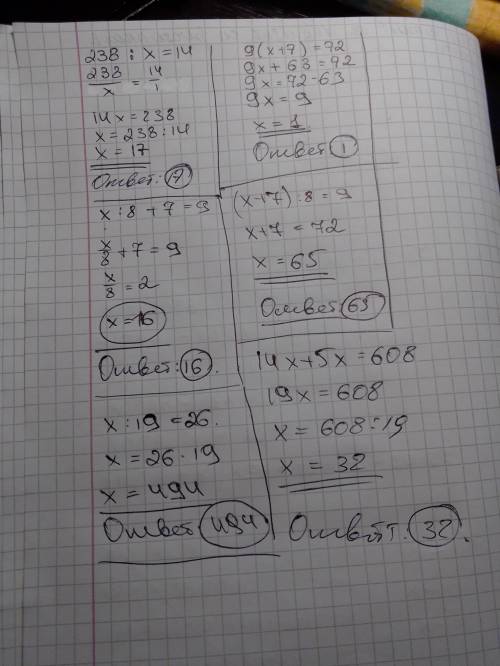 238 : x = 14
238/x = 14/1
14x = 238
x = 238 : 14
x = 17
Ответ: 17
9(x+7) = 72
9x + 63 = 72
9x = 72 - 63
9x = 9
x = 1
Ответ 1
x : 8 + 7 = 9
x/8 + 7 = 9
x/8 = 2
x = 16
Ответ: 16.
(x+7) : 8 = 9
x+7 = 72
x = 65
Ответ: 65
x : 19 = 26.
x = 26 · 19
x = 494
Ответ: 494
14x+5x = 608
19x = 608
x = 608 : 19
x = 32
Ответ: 32.